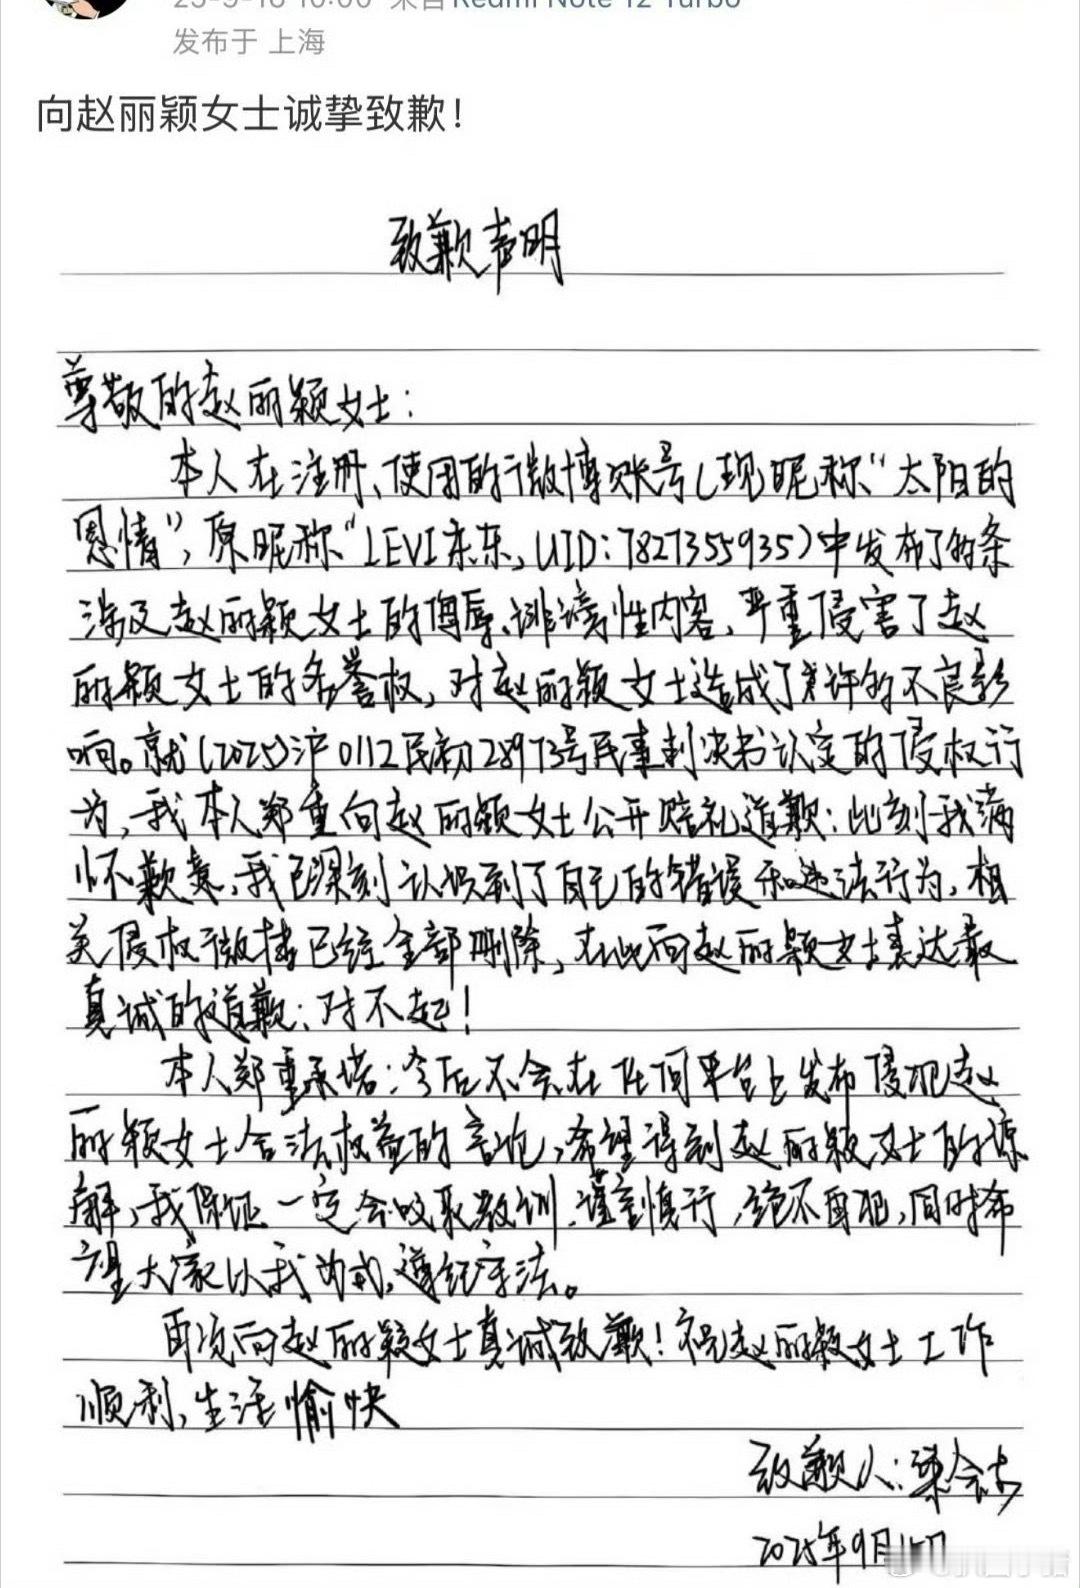 25-9-16 10:00 来自 Redmi Note 12 Turbo
发布于 上海
向赵丽颖女士诚挚致歉！
致歉声明
尊敬的赵丽颖女士：
本人在注册、使用的微博账号（现昵称“太阳的
恩情”，原昵称“LEVI京东，UID：7827355935）中发布了的条
涉及赵丽颖女士的侮辱、诽谤性内容，严重侵害了赵
丽颖女士的名誉权，对赵丽颖女士造成了的不良影
响。就（2025）沪0112民初28973号民事判决书认定的侵权行
为，我本人郑重向赵丽颖女士公开赔礼道歉：此刻我满
怀歉意，我已深刻认识到了自己的错误和违法行为，相
关侵权微博已经全部删除，在此向赵丽颖女士表达最
真诚的道歉：对不起！
本人郑重承诺：今后不会在任何平台上发布侵犯赵
丽颖女士合法权益的言论，希望得到赵丽颖女士的谅
解，我保证一定会吸取教训、谨言慎行，绝不再犯，同时希
望大家以我为戒，遵纪守法。
再次向赵丽颖女士真诚致歉！祝赵丽颖女士工作
顺利，生活愉快
致歉人：梁
2025年9月日